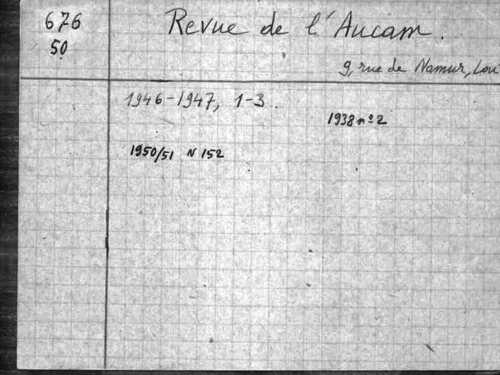 676
50
Revue de l'Aucam.
9, rue de Namur, Lou
1946-1947, 1-3.
1938 nº 2
1950/51 N 152